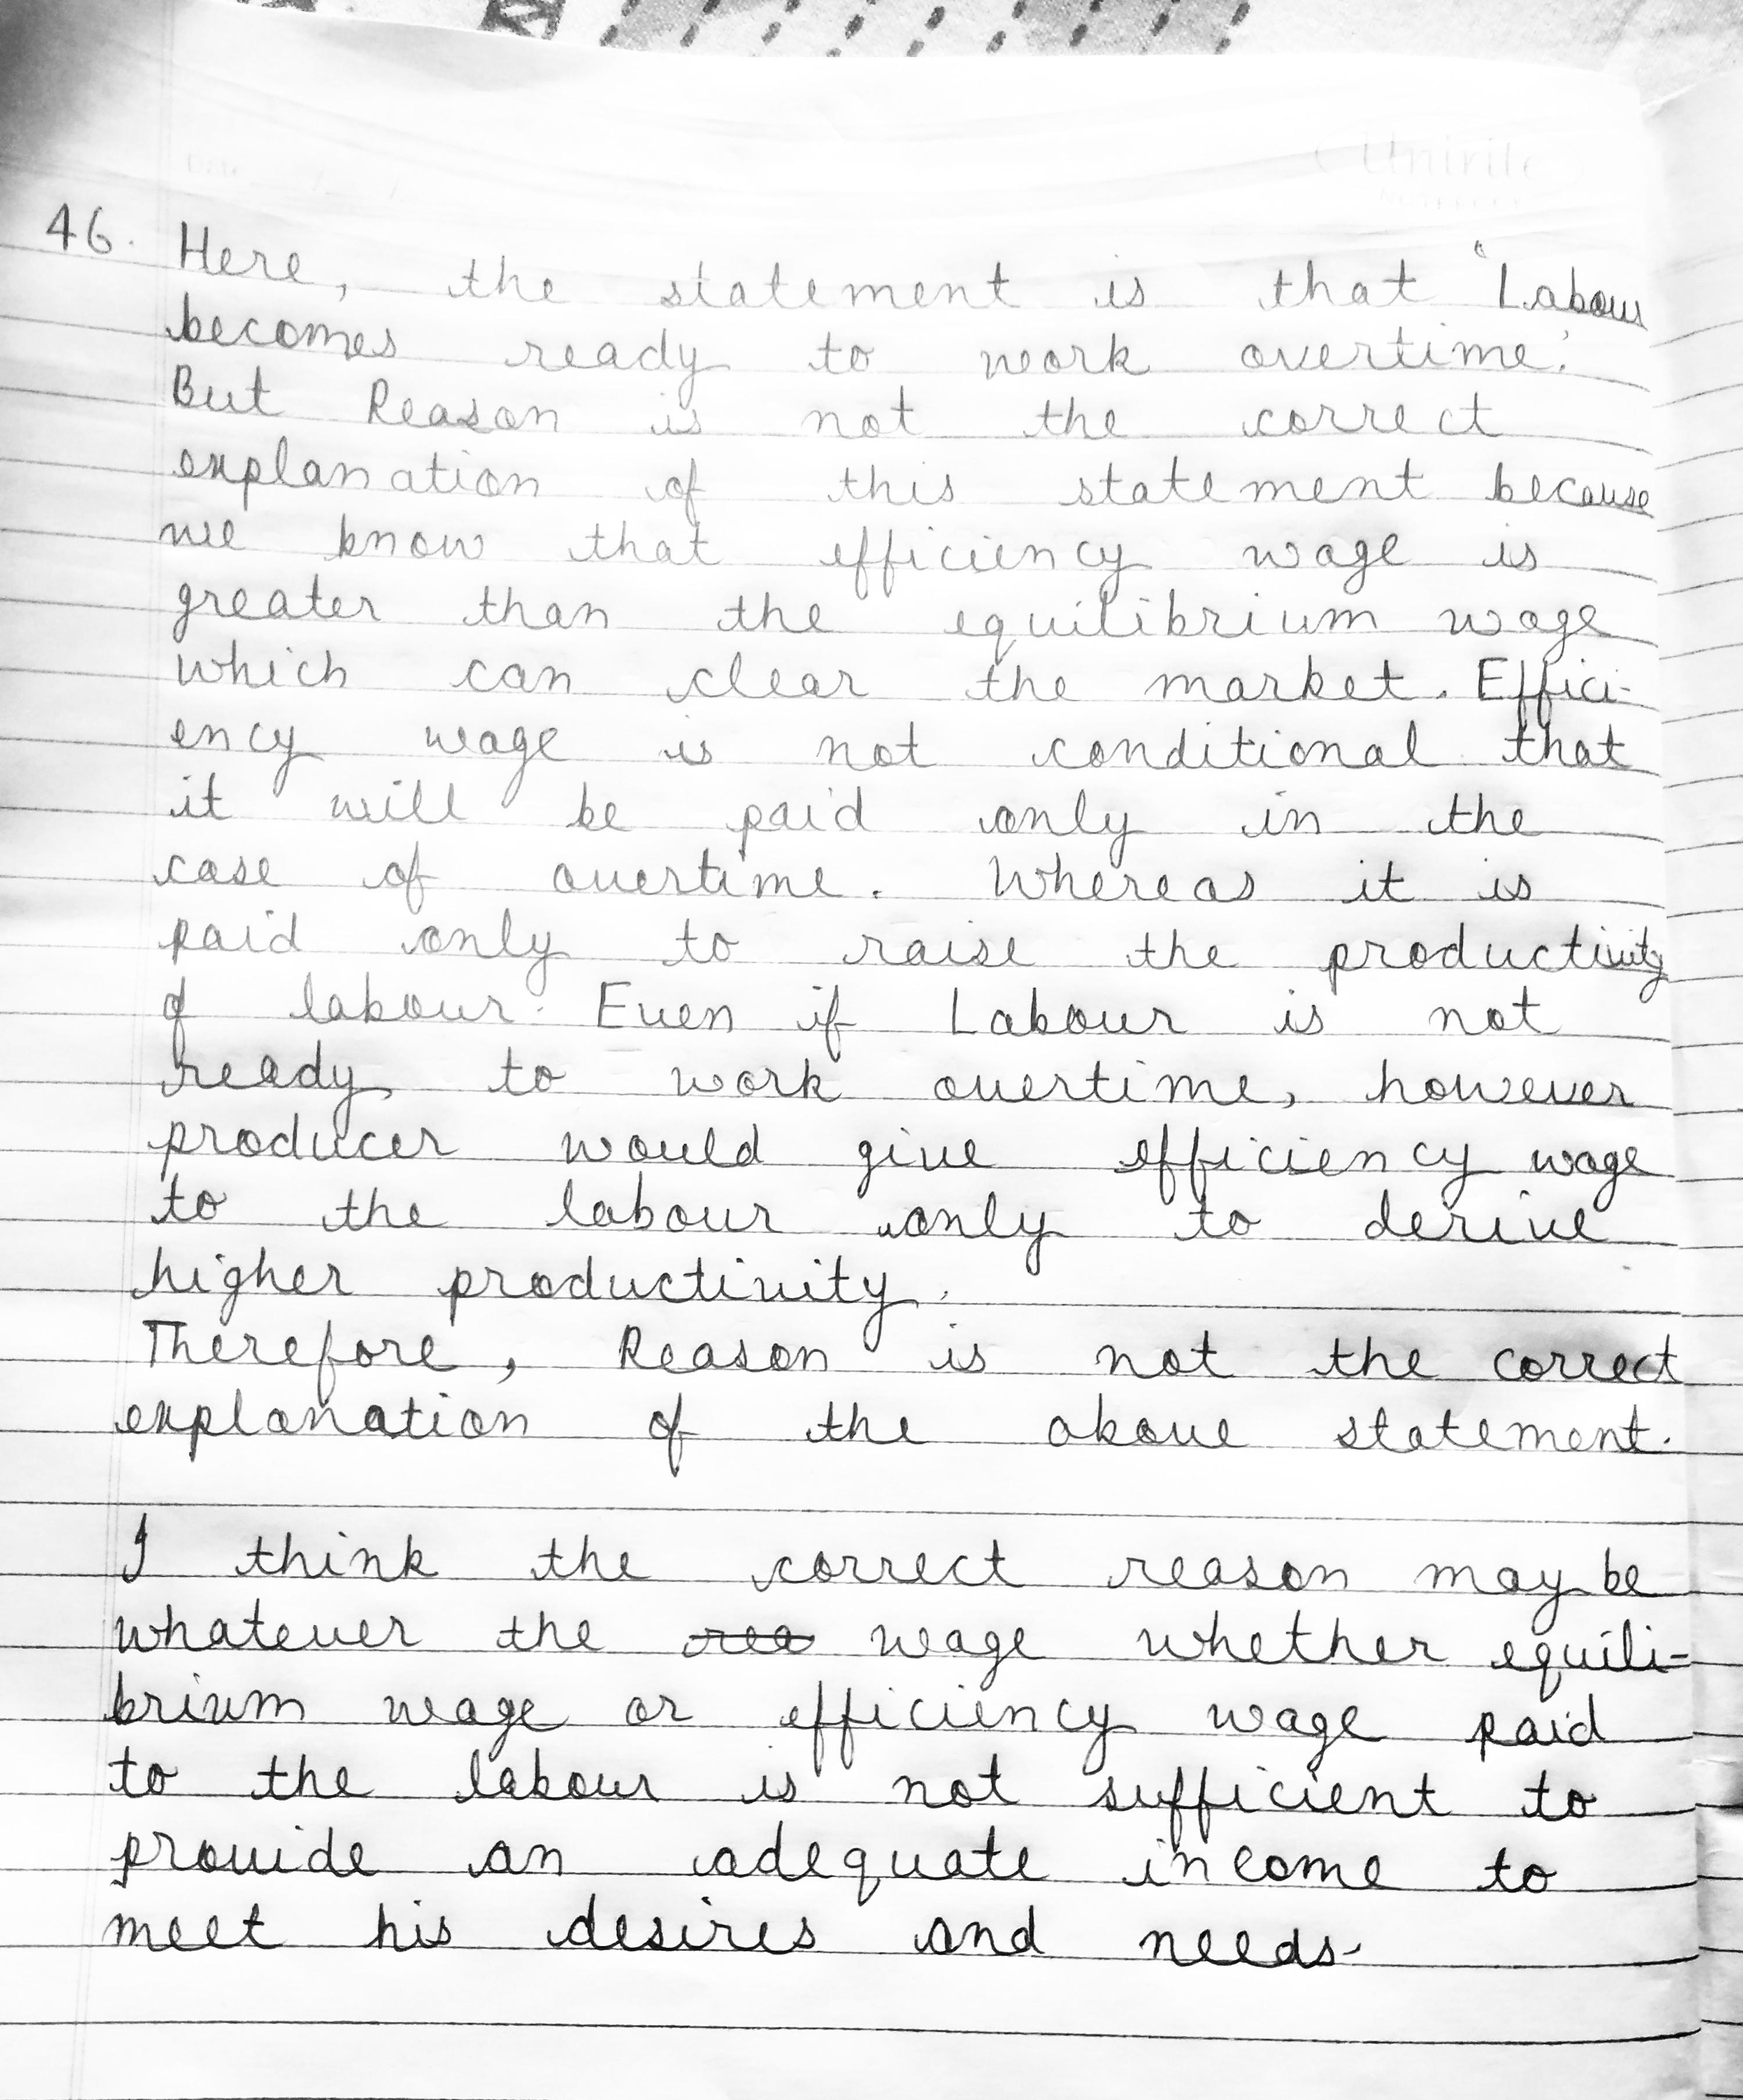 Unirite
Date
46. Here, the statement is that "Labour
becomes ready to work overtime."
But Reason is not the correct
explanation of this statement because
we know that efficiency wage is
greater than the equilibrium wage
which can clear the market. Effici-
ency wage is not conditional that
it will be paid only in the
case of overtime. Whereas it is
paid only to raise the productivity
of labour. Even if Labour is not
ready to work overtime, however
producer would give efficiency wage
to the labour only to derive
higher productivity.
Therefore, Reason is not the correct
explanation of the above statement.
I think the correct reason may be
whatever the rea wage whether equili-
brium wage or efficiency wage paid
to the labour is not sufficient to
provide an adequate income to
meet his desires and needs.